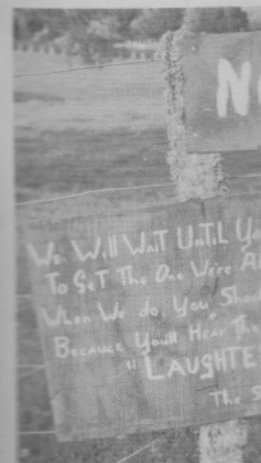 N
We Will Wait Until Yo
To Get The One Were A
When We do, You, Shou
Because Youll Hear The
"LAUGHTE
The S